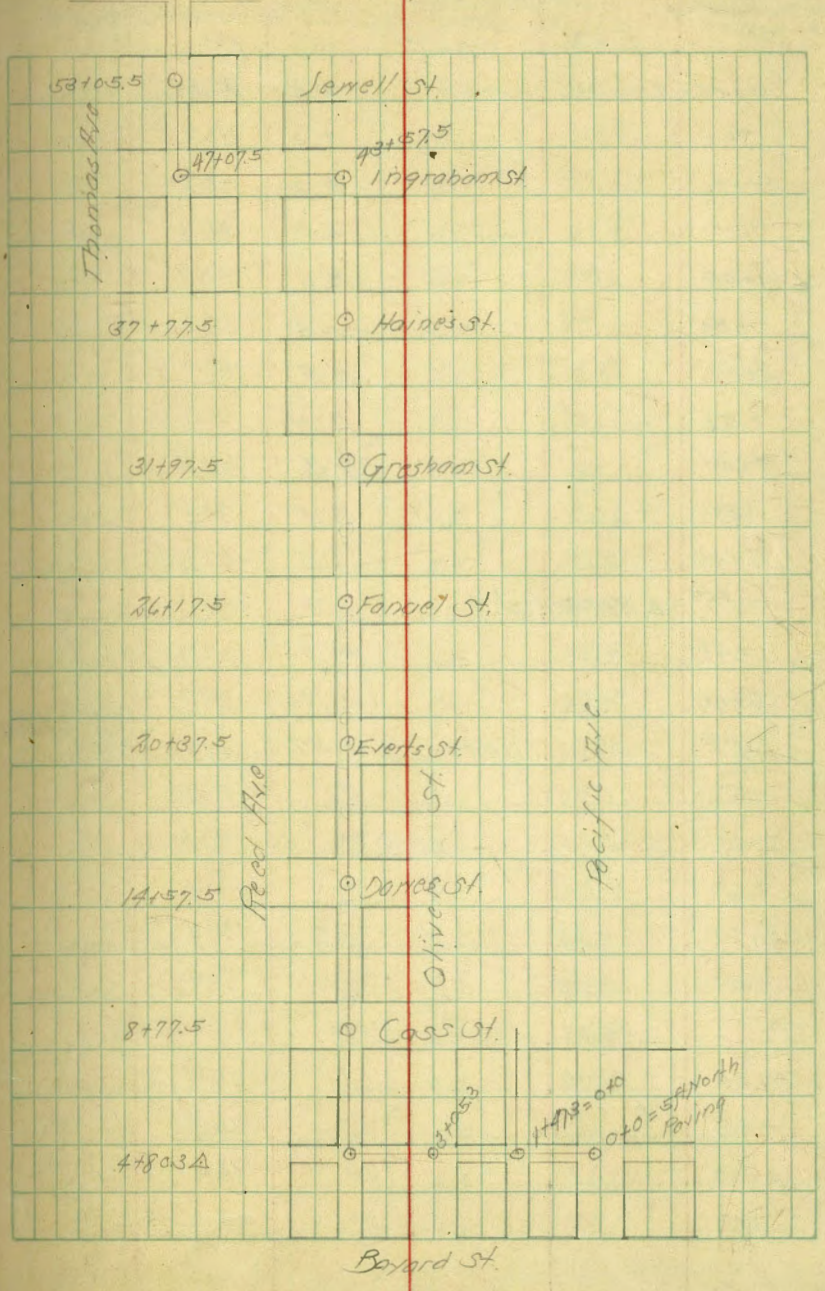 53+05.5
Jewell St.
Thomas Ave
47+07.5
43+57.5
Ingraham St.
37+77.5
Haines St.
31+97.5
Gresham St.
26+17.5
Fanuel St.
20+37.5
Everts St.
Reed Ave
Olive St.
Pacific Ave
14+57.5
Dawes St.
8+77.5
Cass St.
4+80.3 Δ
3+05.3
1+47.3 = 0+0
0+0 = 5ft North
Paving
Bayard St.